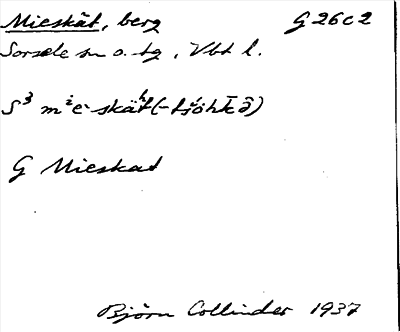 Mieskät, berg G 26 c 2
Sorsele sn o. tg, Vbt l.
S³ mⁱe·skäʰt (-tjåhkā̂)
G Mieskat
Björn Collinder 1937